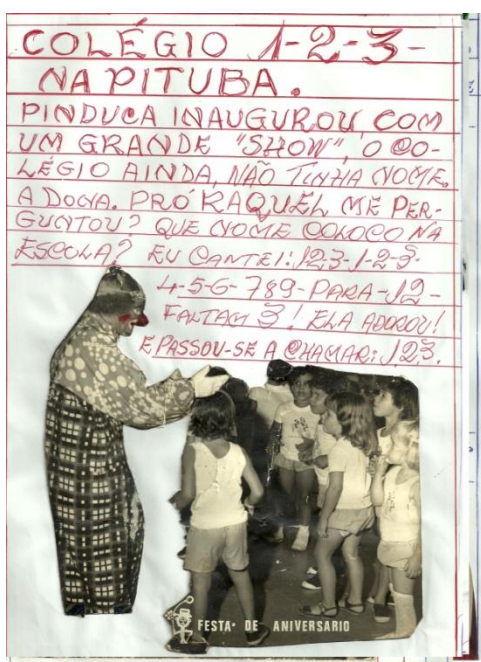 COLÉGIO 1-2-3-
NA PITUBA.
PINDUCA INAUGUROU, COM
UM GRANDE "SHOW", O CO-
LÉGIO AINDA, NÃO TINHA NOME.
A DONA. PRÓ RAQUÉL ME PER-
GUNTOU? QUE NOME COLOCO NA
ESCOLA? EU CANTEI: 123-1-2-3-
4-5-6-789-PARA-12-
FALTAM 3! ELA ADOROU!
E PASSOU-SE A CHAMAR: 123.
FESTA DE ANIVERSARIO